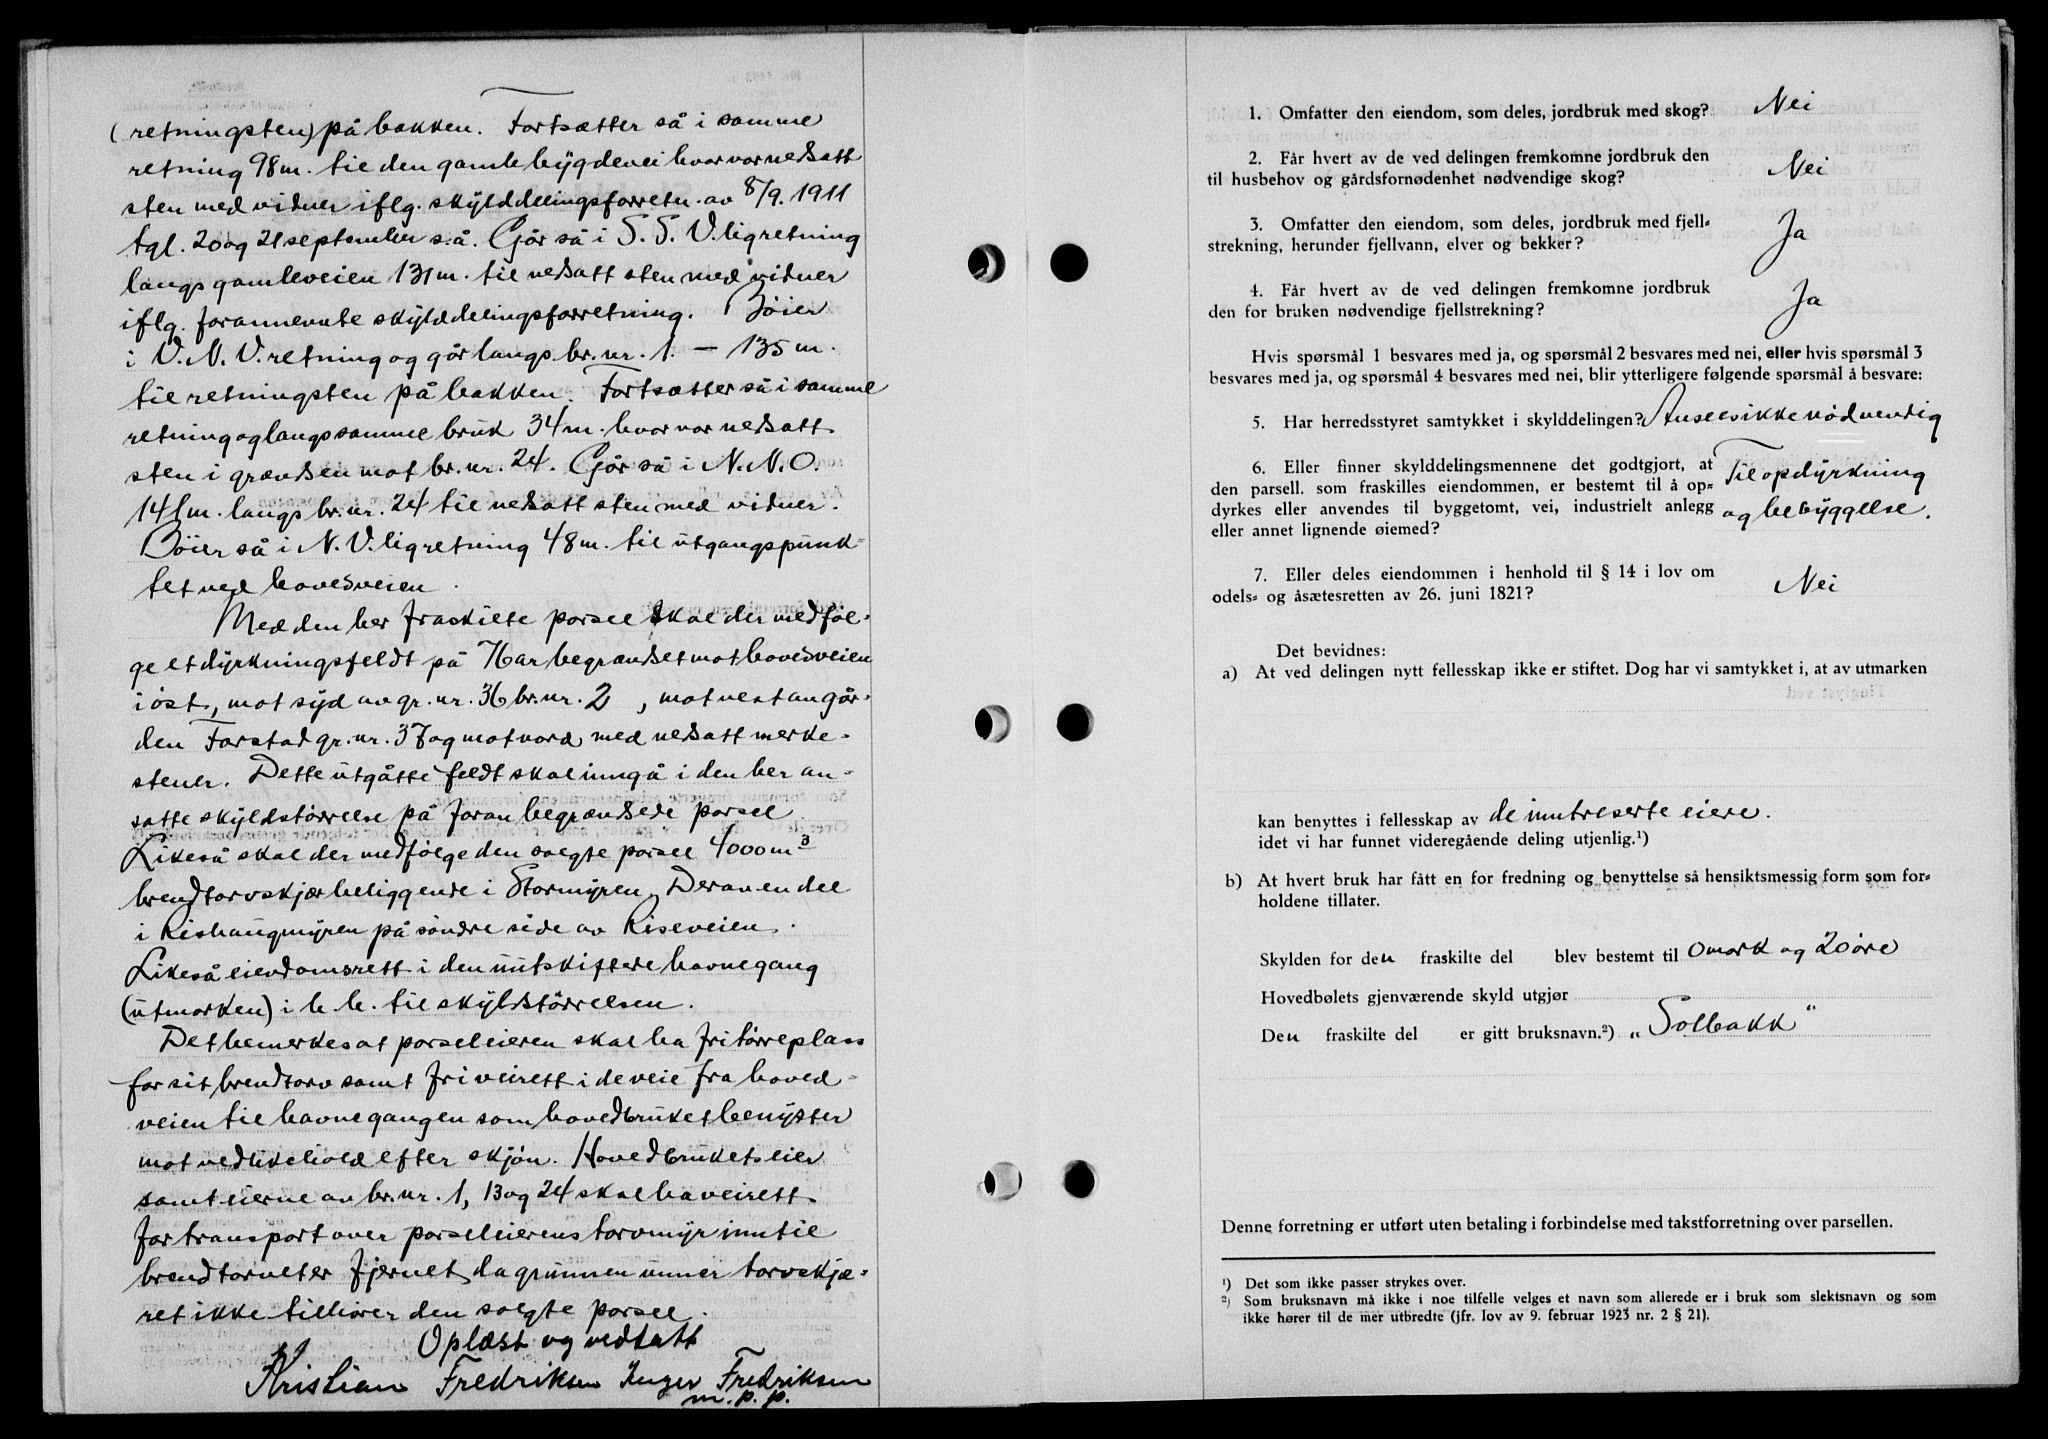 (retningsten) på bakken. Fortsætter så i samme
retning 98 m. til den gamle bygdevei hvor var nedsatt
sten med vidner iflg. skylddelingsforretn. av 8/9. 1911
tgl. 20 og 21 september s.å. Går så i S. S. V. lig retning
langs gamleveien 131 m. til nedsatt sten med vidner
iflg. forannevnte skylddelingsforretning. Bøier
i V. N. V. retning og går langs br. nr. 1. — 135 m.
til retningsten på bakken. Fortsætter så i samme
retning og langs samme bruk 34 m. hvor var nedsatt
sten i grændsen mot br. nr. 24. Går så i N. N. O.
141 m. langs br. nr. 24 til nedsatt sten med vidner.
Bøier så i N. V. lig retning 48 m. til utgangspunk-
tet ved hovedveien.
Med den her fraskilte parsel skal der medføl-
ge et dyrkningsfeldt på 76 ar begrændset mot hovedveien
i øst, mot syd av gr. nr. 36 br. nr. 2, mot vest av går-
den Farstad gr. nr. 37 og mot nord med nedsatt merke-
stener. Dette utgåtte feldt skal inngå i den her an-
satte skyldstørrelse på foran begrændsede parsel.
Likeså skal der medfølge den solgte parsel 4000 m³
brendtorvskjær beliggende i Stormyren. Derav en del
i Rishaugmyren på søndre side av Riseveien.
Likeså eiendomsrett i den uutskiftede havnegang
(utmarken) i h. h. til skyldstørrelsen.
Det bemerkes at parseleieren skal ha fri tørreplass
for sit brendtorv samt fri veirett i de veie fra hoved-
veien til havnegangen som hovedbruket benytter
mot vedlikehold efter skjøn. Hovedbrukets eier
samt eierne av br. nr. 1, 13 og 24 skal ha veirett
for transport over parseleierens torvmyr inntil
brendtorvet er fjernet, da grunnen unner torvskjæ-
ret ikke tilhører den solgte parsel.
Oplæst og vedtatt
Kristian Fredriksen Inger Fredriksen
m. p. p.
1. Omfatter den eiendom, som deles, jordbruk med skog? Nei
2. Får hvert av de ved delingen fremkomne jordbruk den
til husbehov og gårdsfornødenhet nødvendige skog? Nei
3. Omfatter den eiendom, som deles, jordbruk med fjell-
strekning, herunder fjellvann, elver og bekker? Ja
4. Får hvert av de ved delingen fremkomne jordbruk
den for bruken nødvendige fjellstrekning? Ja
Hvis spørsmål 1 besvares med ja, og spørsmål 2 besvares med nei, eller hvis spørsmål 3
besvares med ja, og spørsmål 4 besvares med nei, blir ytterligere følgende spørsmål å besvare:
5. Har herredsstyret samtykket i skylddelingen? Ansees ikke nødvendig
6. Eller finner skylddelingsmennene det godtgjort, at
den parsell. som fraskilles eiendommen, er bestemt til å op- Til opdyrkning
dyrkes eller anvendes til byggetomt, vei, industrielt anlegg og bebyggelse.
eller annet lignende øiemed?
7. Eller deles eiendommen i henhold til § 14 i lov om
odels- og åsætesretten av 26. juni 1821? Nei
Det bevidnes:
a) At ved delingen nytt fellesskap ikke er stiftet. Dog har vi samtykket i, at av utmarken
kan benyttes i fellesskap av de inntreserte eiere.
idet vi har funnet videregående deling utjenlig.¹)
b) At hvert bruk har fått en for fredning og benyttelse så hensiktsmessig form som for-
holdene tillater.
Skylden for den fraskilte del blev bestemt til 0 mark og 20 øre
Hovedbølets gjenværende skyld utgjør
Den fraskilte del er gitt bruksnavn.²) „Solbakk"
Denne forretning er utført uten betaling i forbindelse med takstforretning over parsellen.
¹) Det som ikke passer strykes over.
²) Som bruksnavn må ikke i noe tilfelle velges et navn som allerede er i bruk som slektsnavn og som
ikke hører til de mer utbredte (jfr. lov av 9. februar 1923 nr. 2 § 21).